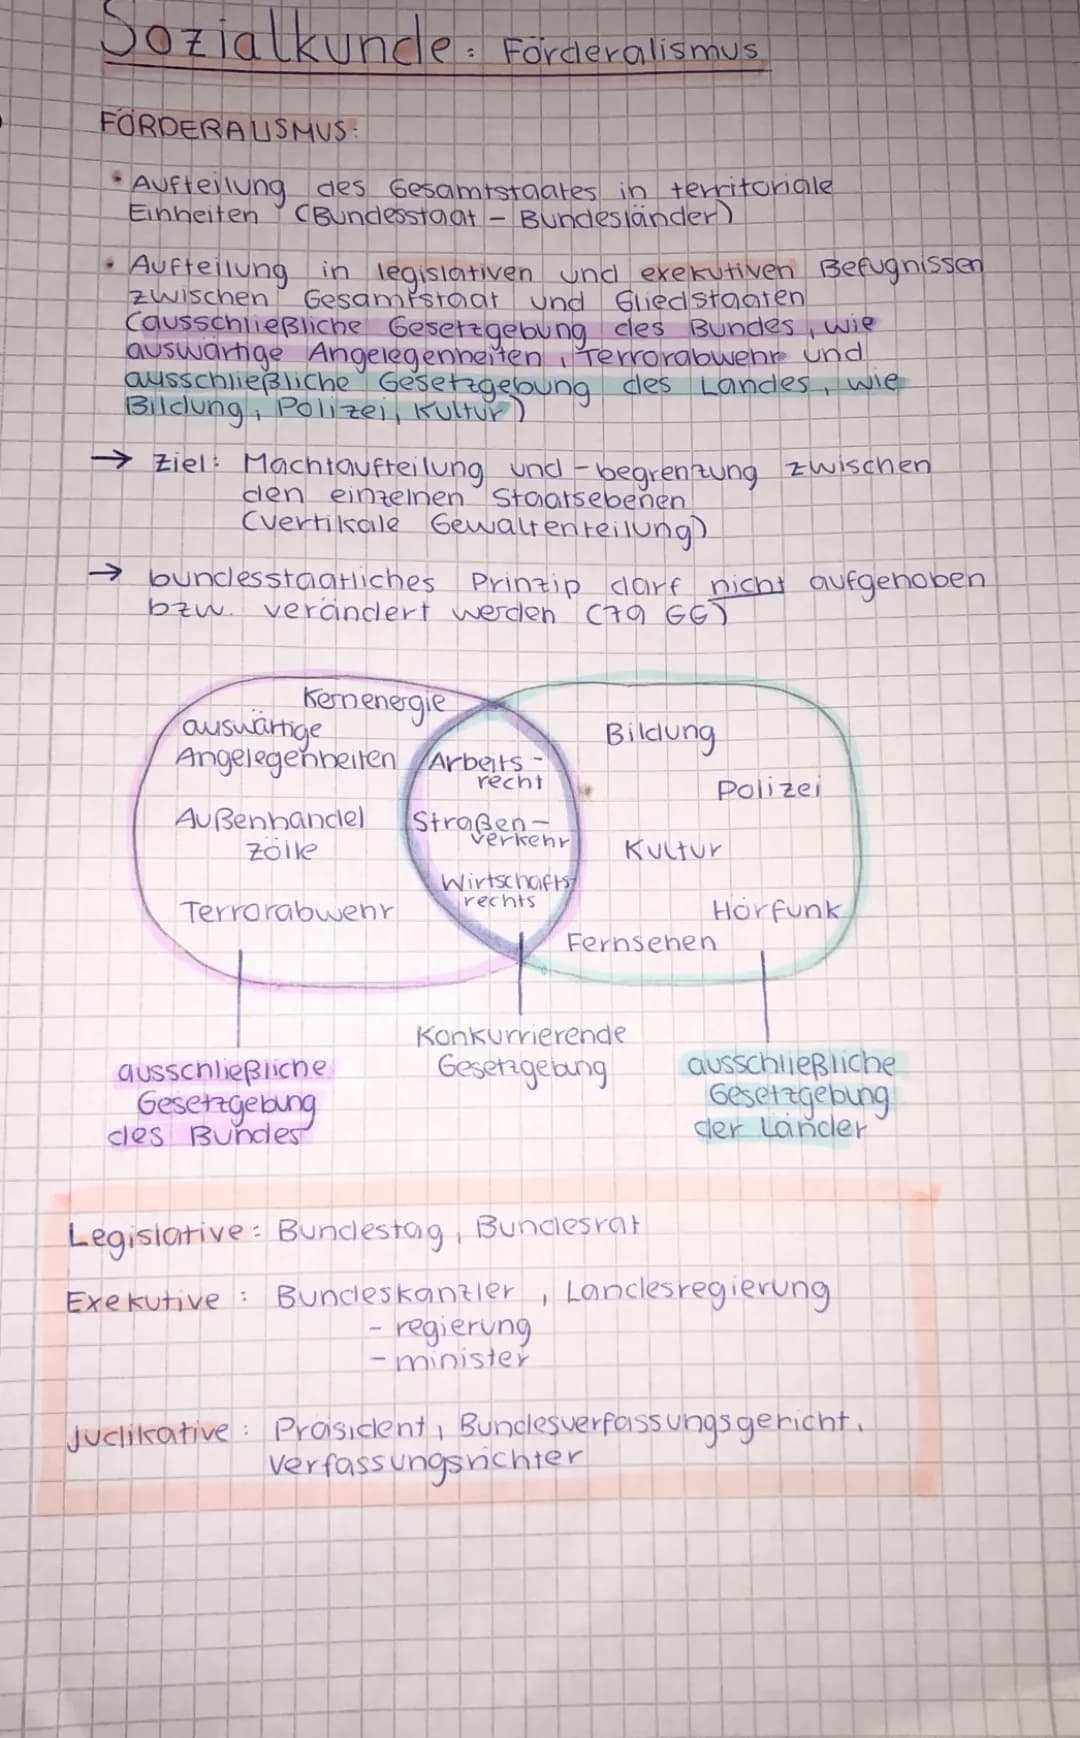 Sozialkunde: Förderalismus
FÖRDERALISMUS:
• Aufteilung des Gesamtstaates in territoriale
Einheiten (Bundesstaat - Bundesländer)
• Aufteilung in legislativen und exekutiven Befugnissen
zwischen Gesamtstaat und Gliedstaaten
(ausschließliche Gesetzgebung des Bundes, wie
auswärtige Angelegenheiten, Terrorabwehr und
ausschließliche Gesetzgebung des Landes, wie
Bildung, Polizei, Kultur)
→ Ziel: Machtaufteilung und -begrenzung zwischen
den einzelnen Staatsebenen
(vertikale Gewaltenteilung)
→ bundesstaatliches Prinzip darf nicht aufgehoben
bzw. verändert werden (79 GG)
Kernenergie
auswärtige
Angelegenheiten
Außenhandel
Zölle
Terrorabwehr
Arbeits-
recht
Straßen-
verkehr
Wirtschafts-
rechts
Bildung
Polizei
Kultur
Hörfunk
Fernsehen
ausschließliche
Gesetzgebung
des Bundes
Konkurrierende
Gesetzgebung
ausschließliche
Gesetzgebung
der Länder
Legislative: Bundestag, Bundesrat
Exekutive: Bundeskanzler, Landesregierung
- regierung
- minister
Judikative: Präsident, Bundesverfassungsgericht,
Verfassungsrichter